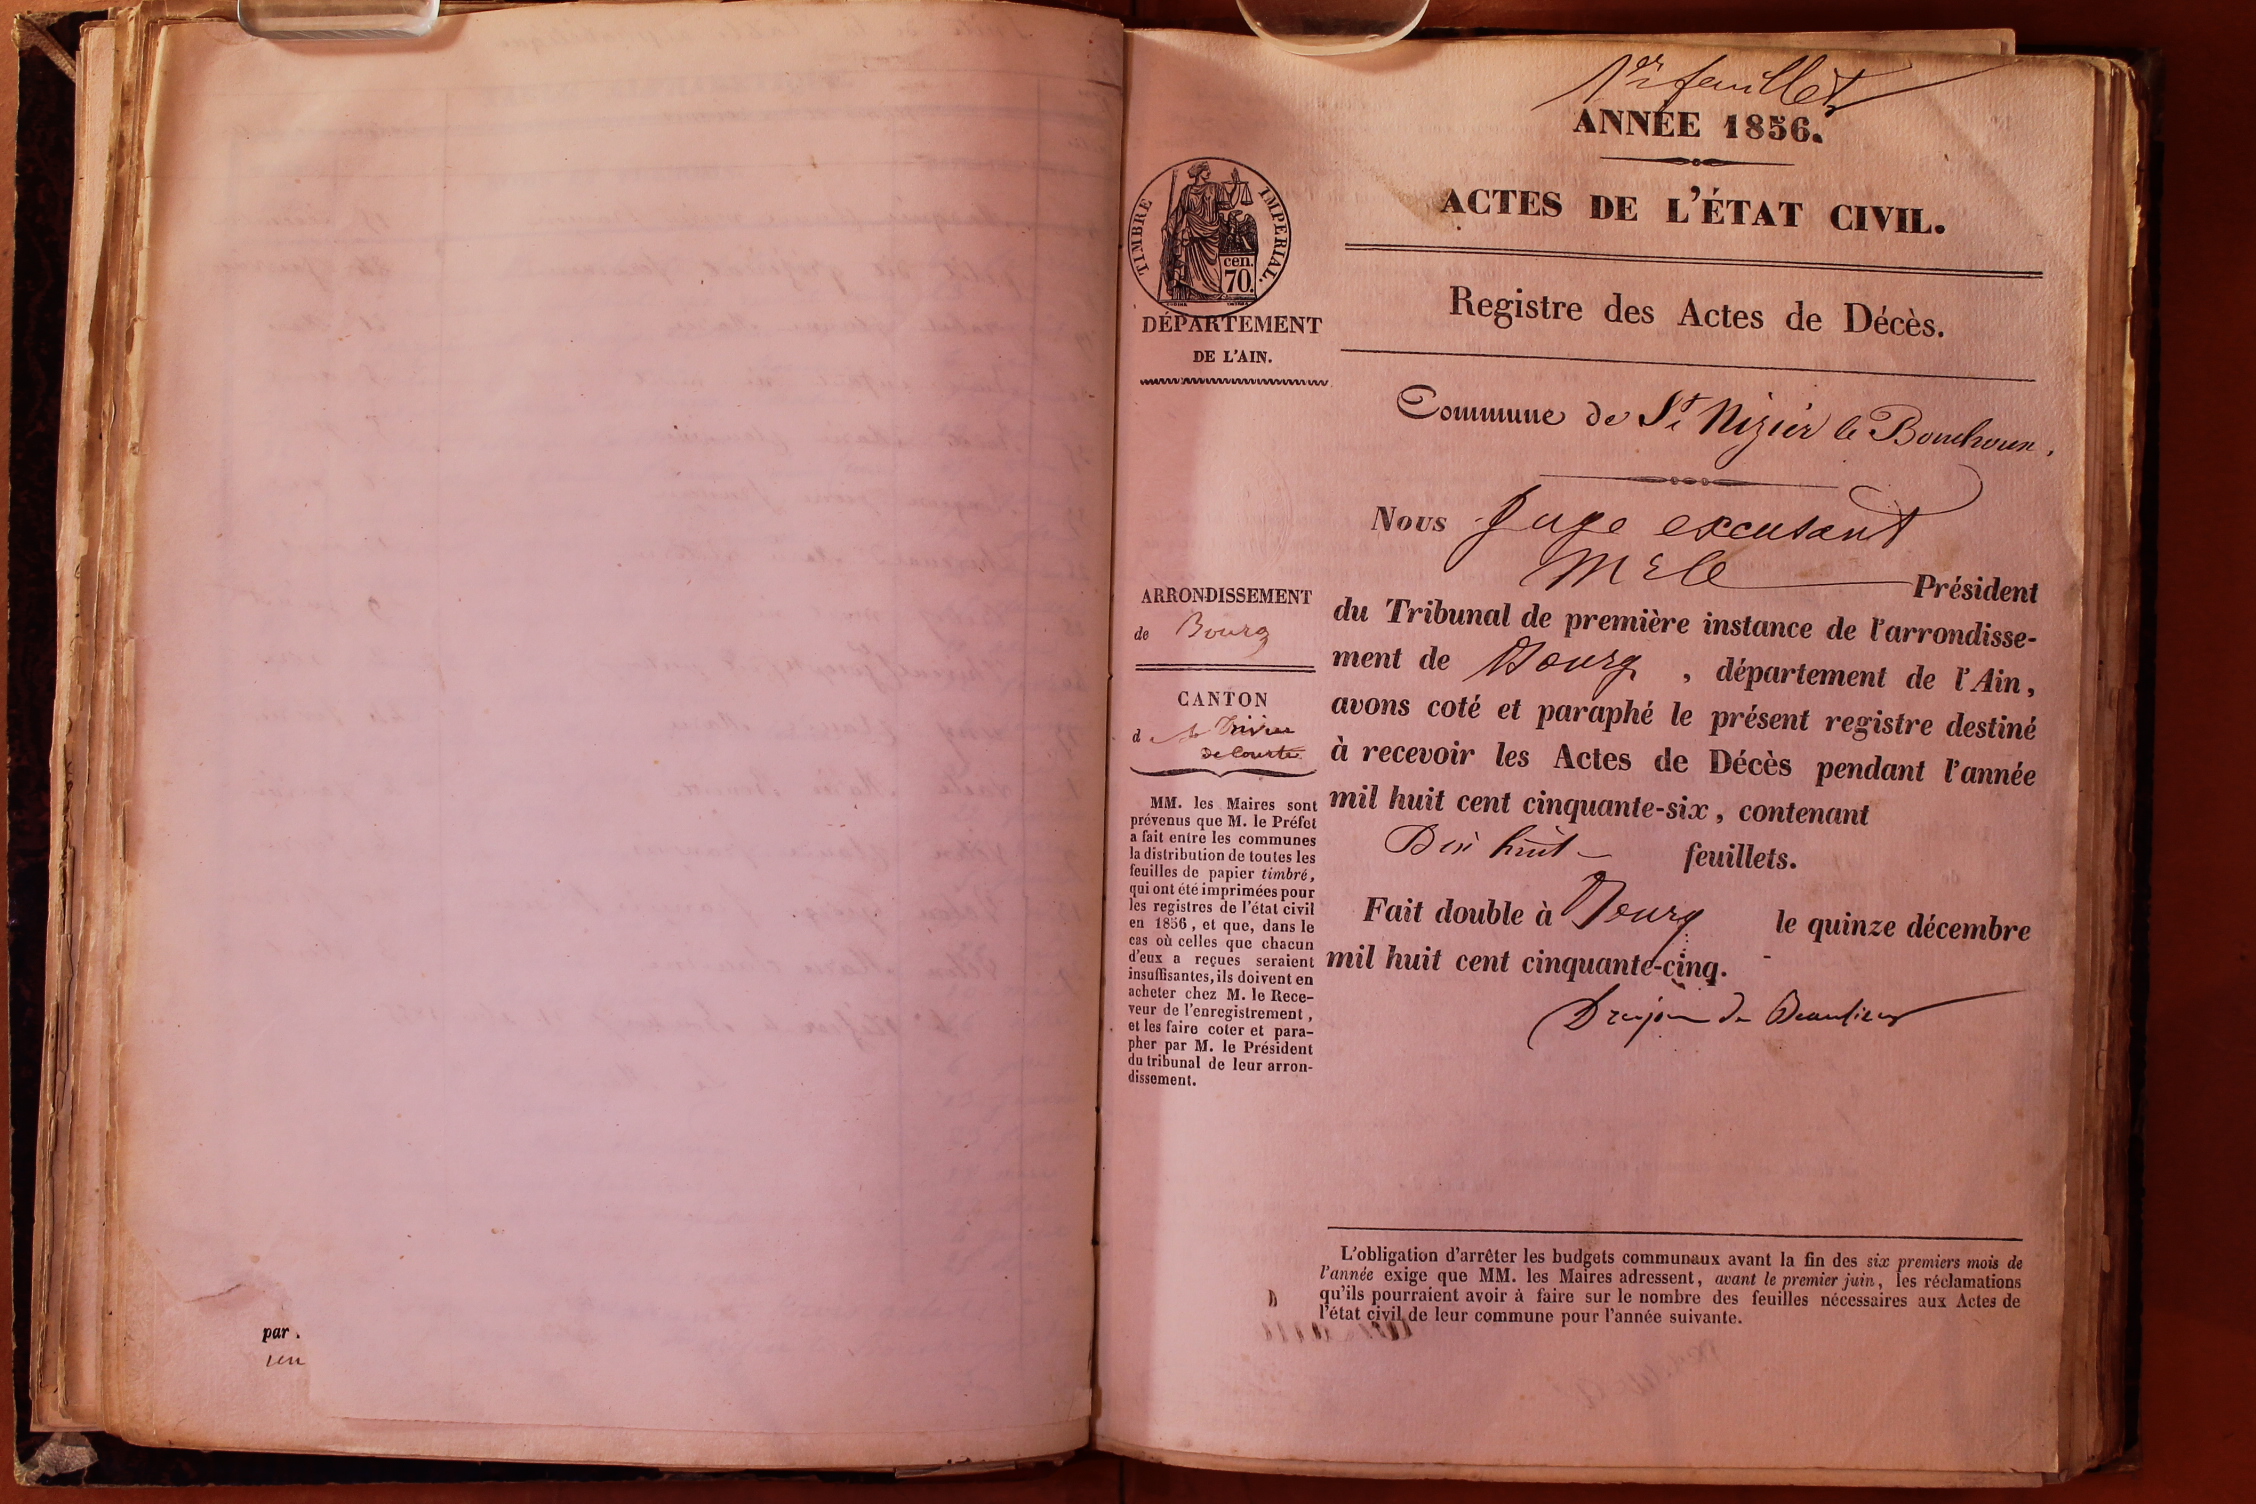 par
1er feuillet
ANNÉE 1856.
ACTES DE L'ÉTAT CIVIL.
TIMBRE IMPERIAL.
cen.
70.
DÉPARTEMENT
DE L'AIN.
Registre des Actes de Décès.
Commune de St Nizier le Bouchoux,
Nous Juge excusant
Mr le Président
ARRONDISSEMENT
de Bourg
CANTON
d St Trivier
de Courtes
MM. les Maires sont
prévenus que M. le Préfet
a fait entre les communes
la distribution de toutes les
feuilles de papier timbré,
qui ont été imprimées pour
les registres de l'état civil
en 1856, et que, dans le
cas où celles que chacun
d'eux a reçues seraient
insuffisantes, ils doivent en
acheter chez M. le Rece-
veur de l'enregistrement,
et les faire coter et para-
pher par M. le Président
du tribunal de leur arron-
dissement.
du Tribunal de première instance de l'arrondisse-
ment de Bourg, département de l'Ain,
avons coté et paraphé le présent registre destiné
à recevoir les Actes de Décès pendant l'année
mil huit cent cinquante-six, contenant
Dix huit feuillets.
Fait double à Bourg le quinze décembre
mil huit cent cinquante-cinq.
Drujon de Beaulieu
L'obligation d'arrêter les budgets communaux avant la fin des six premiers mois de
l'année exige que MM. les Maires adressent, avant le premier juin, les réclamations
qu'ils pourraient avoir à faire sur le nombre des feuilles nécessaires aux Actes de
l'état civil de leur commune pour l'année suivante.